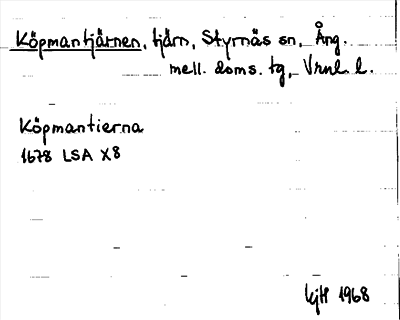 Köpmantjärnen, tjärn, Styrnäs sn, Ång.
mell. doms. tg, Vrnl. l.
Köpmantierna
1678 LSA X8
kjH 1968